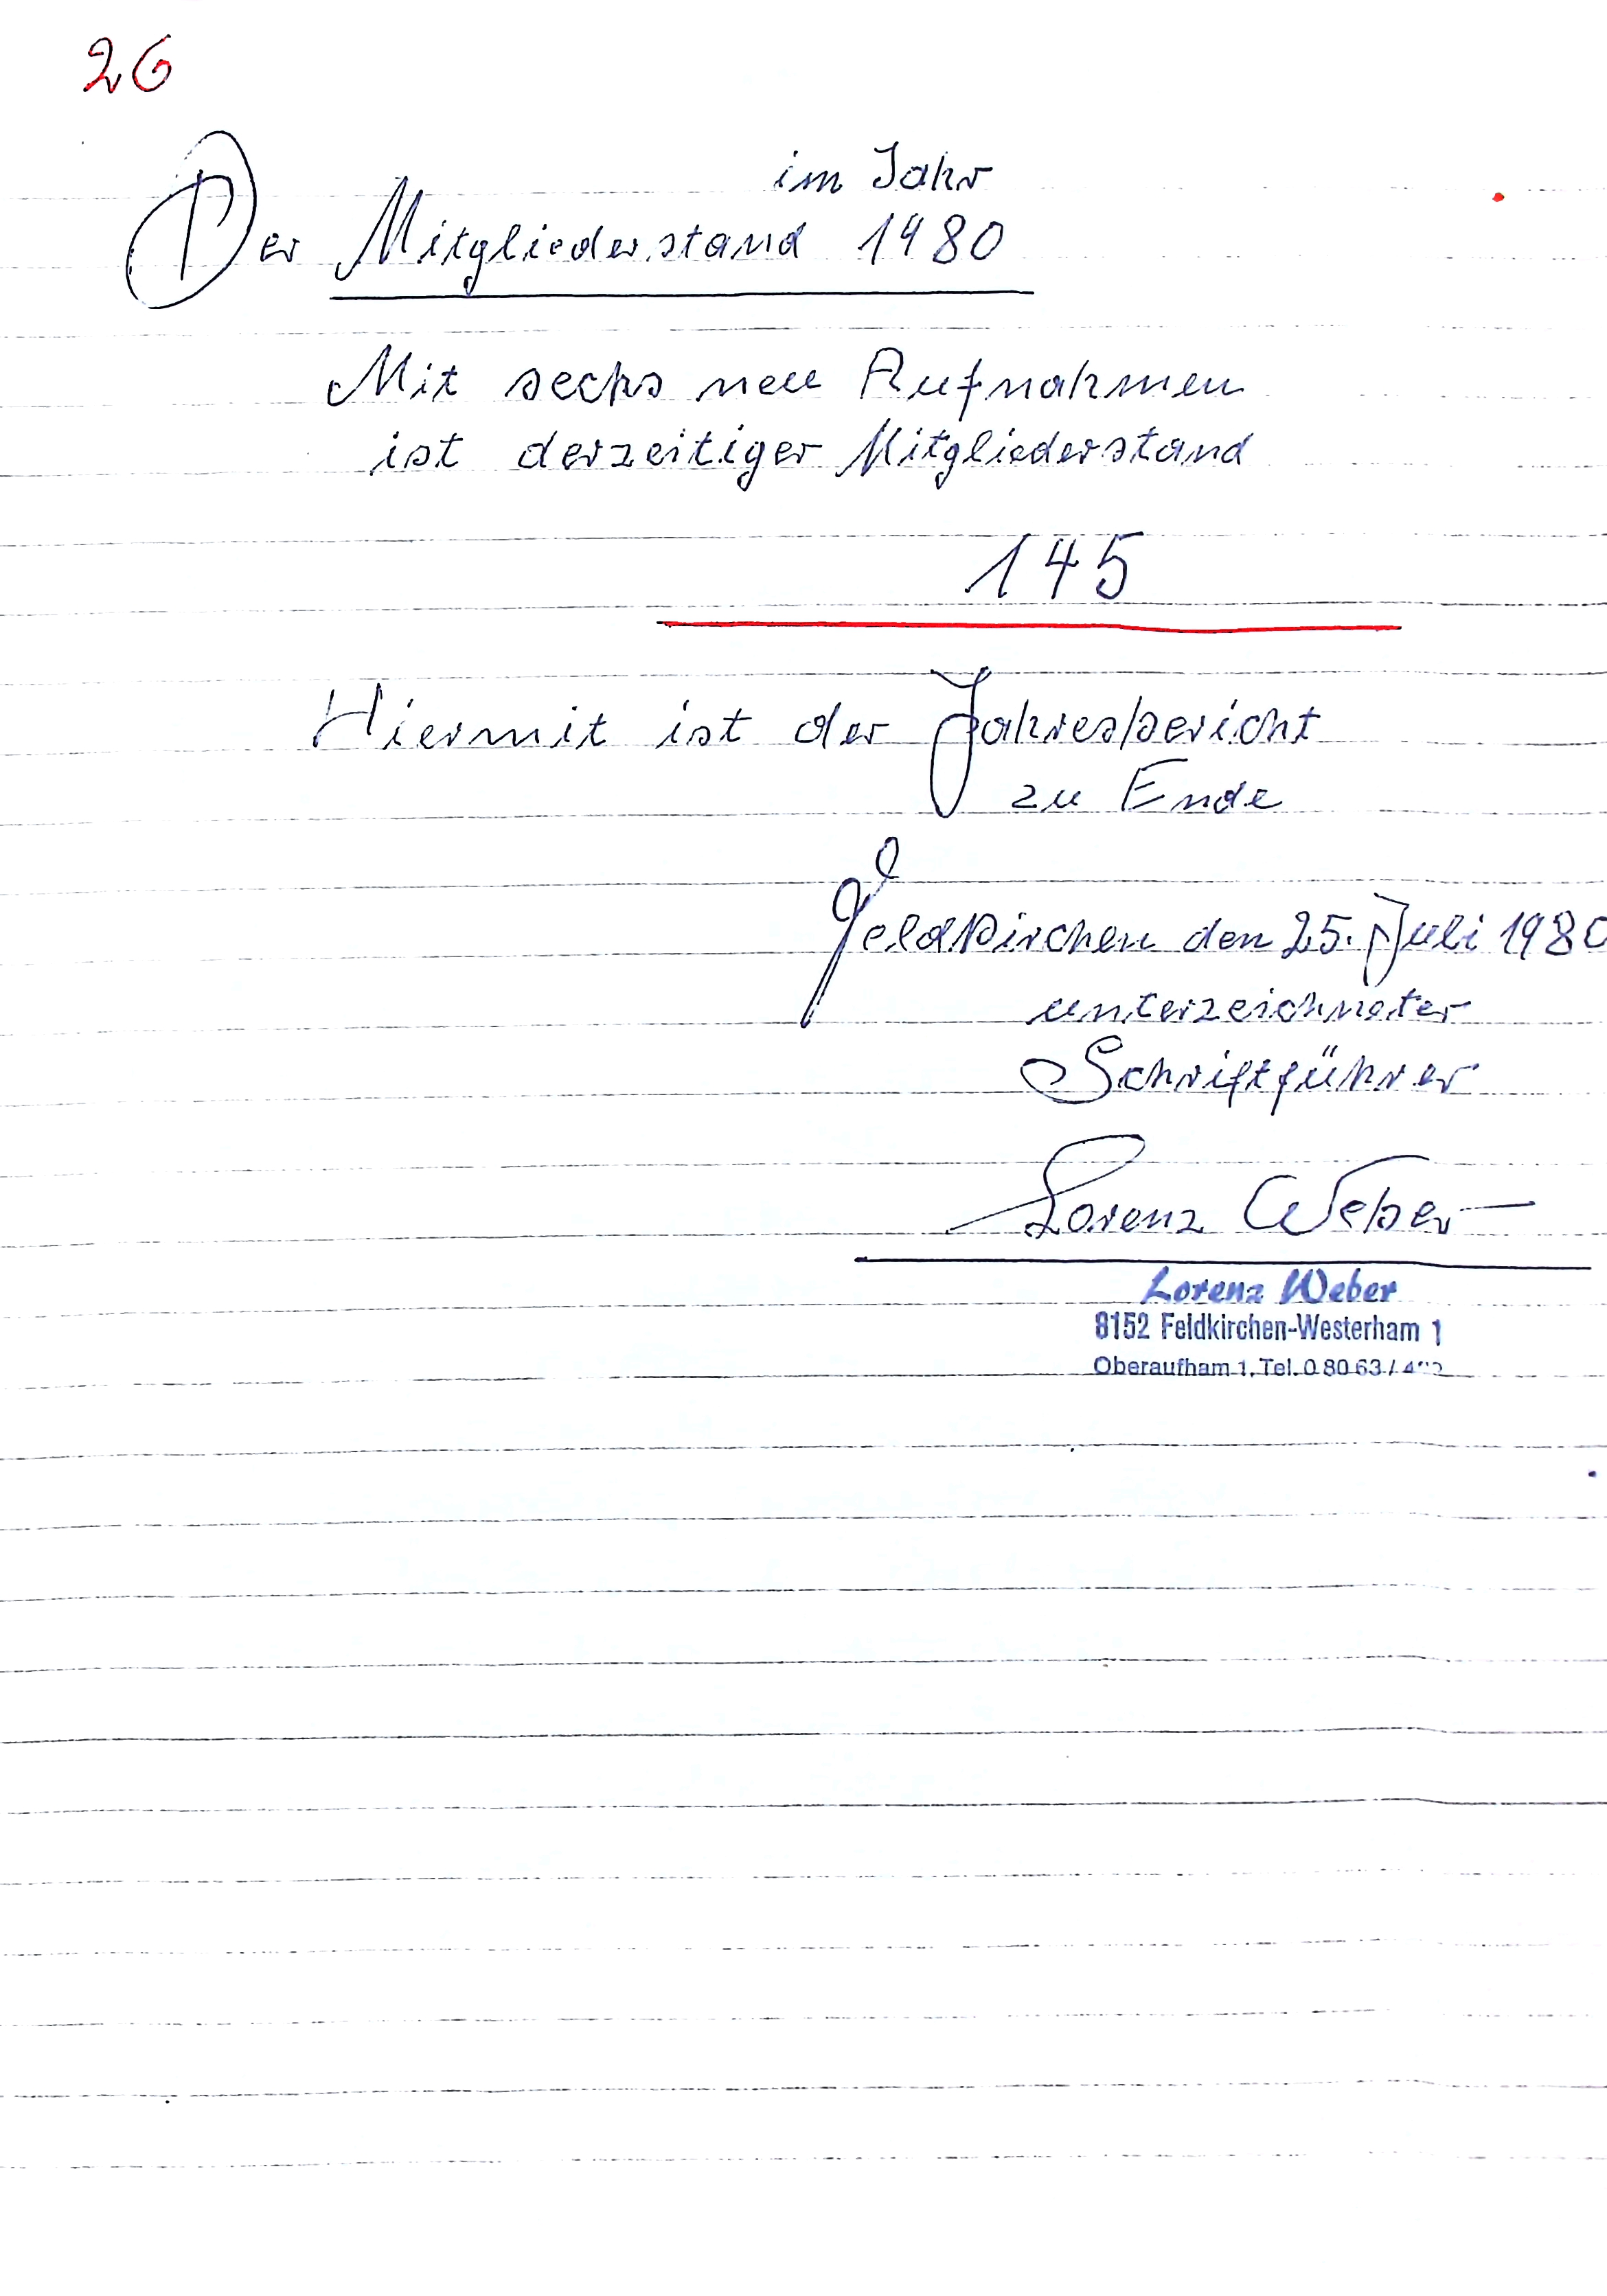 26
im Jahr
Der Mitgliederstand 1980
Mit sechs neu Aufnahmen
ist derzeitiger Mitgliederstand
145
Hiermit ist der Jahresbericht
zu Ende
Feldkirchen den 25. Juli 1980
unterzeichneter
Schriftführer
Lorenz Weber
Lorenz Weber
8152 Feldkirchen-Westerham 1
Oberaufham 1, Tel. 0 80 63 /